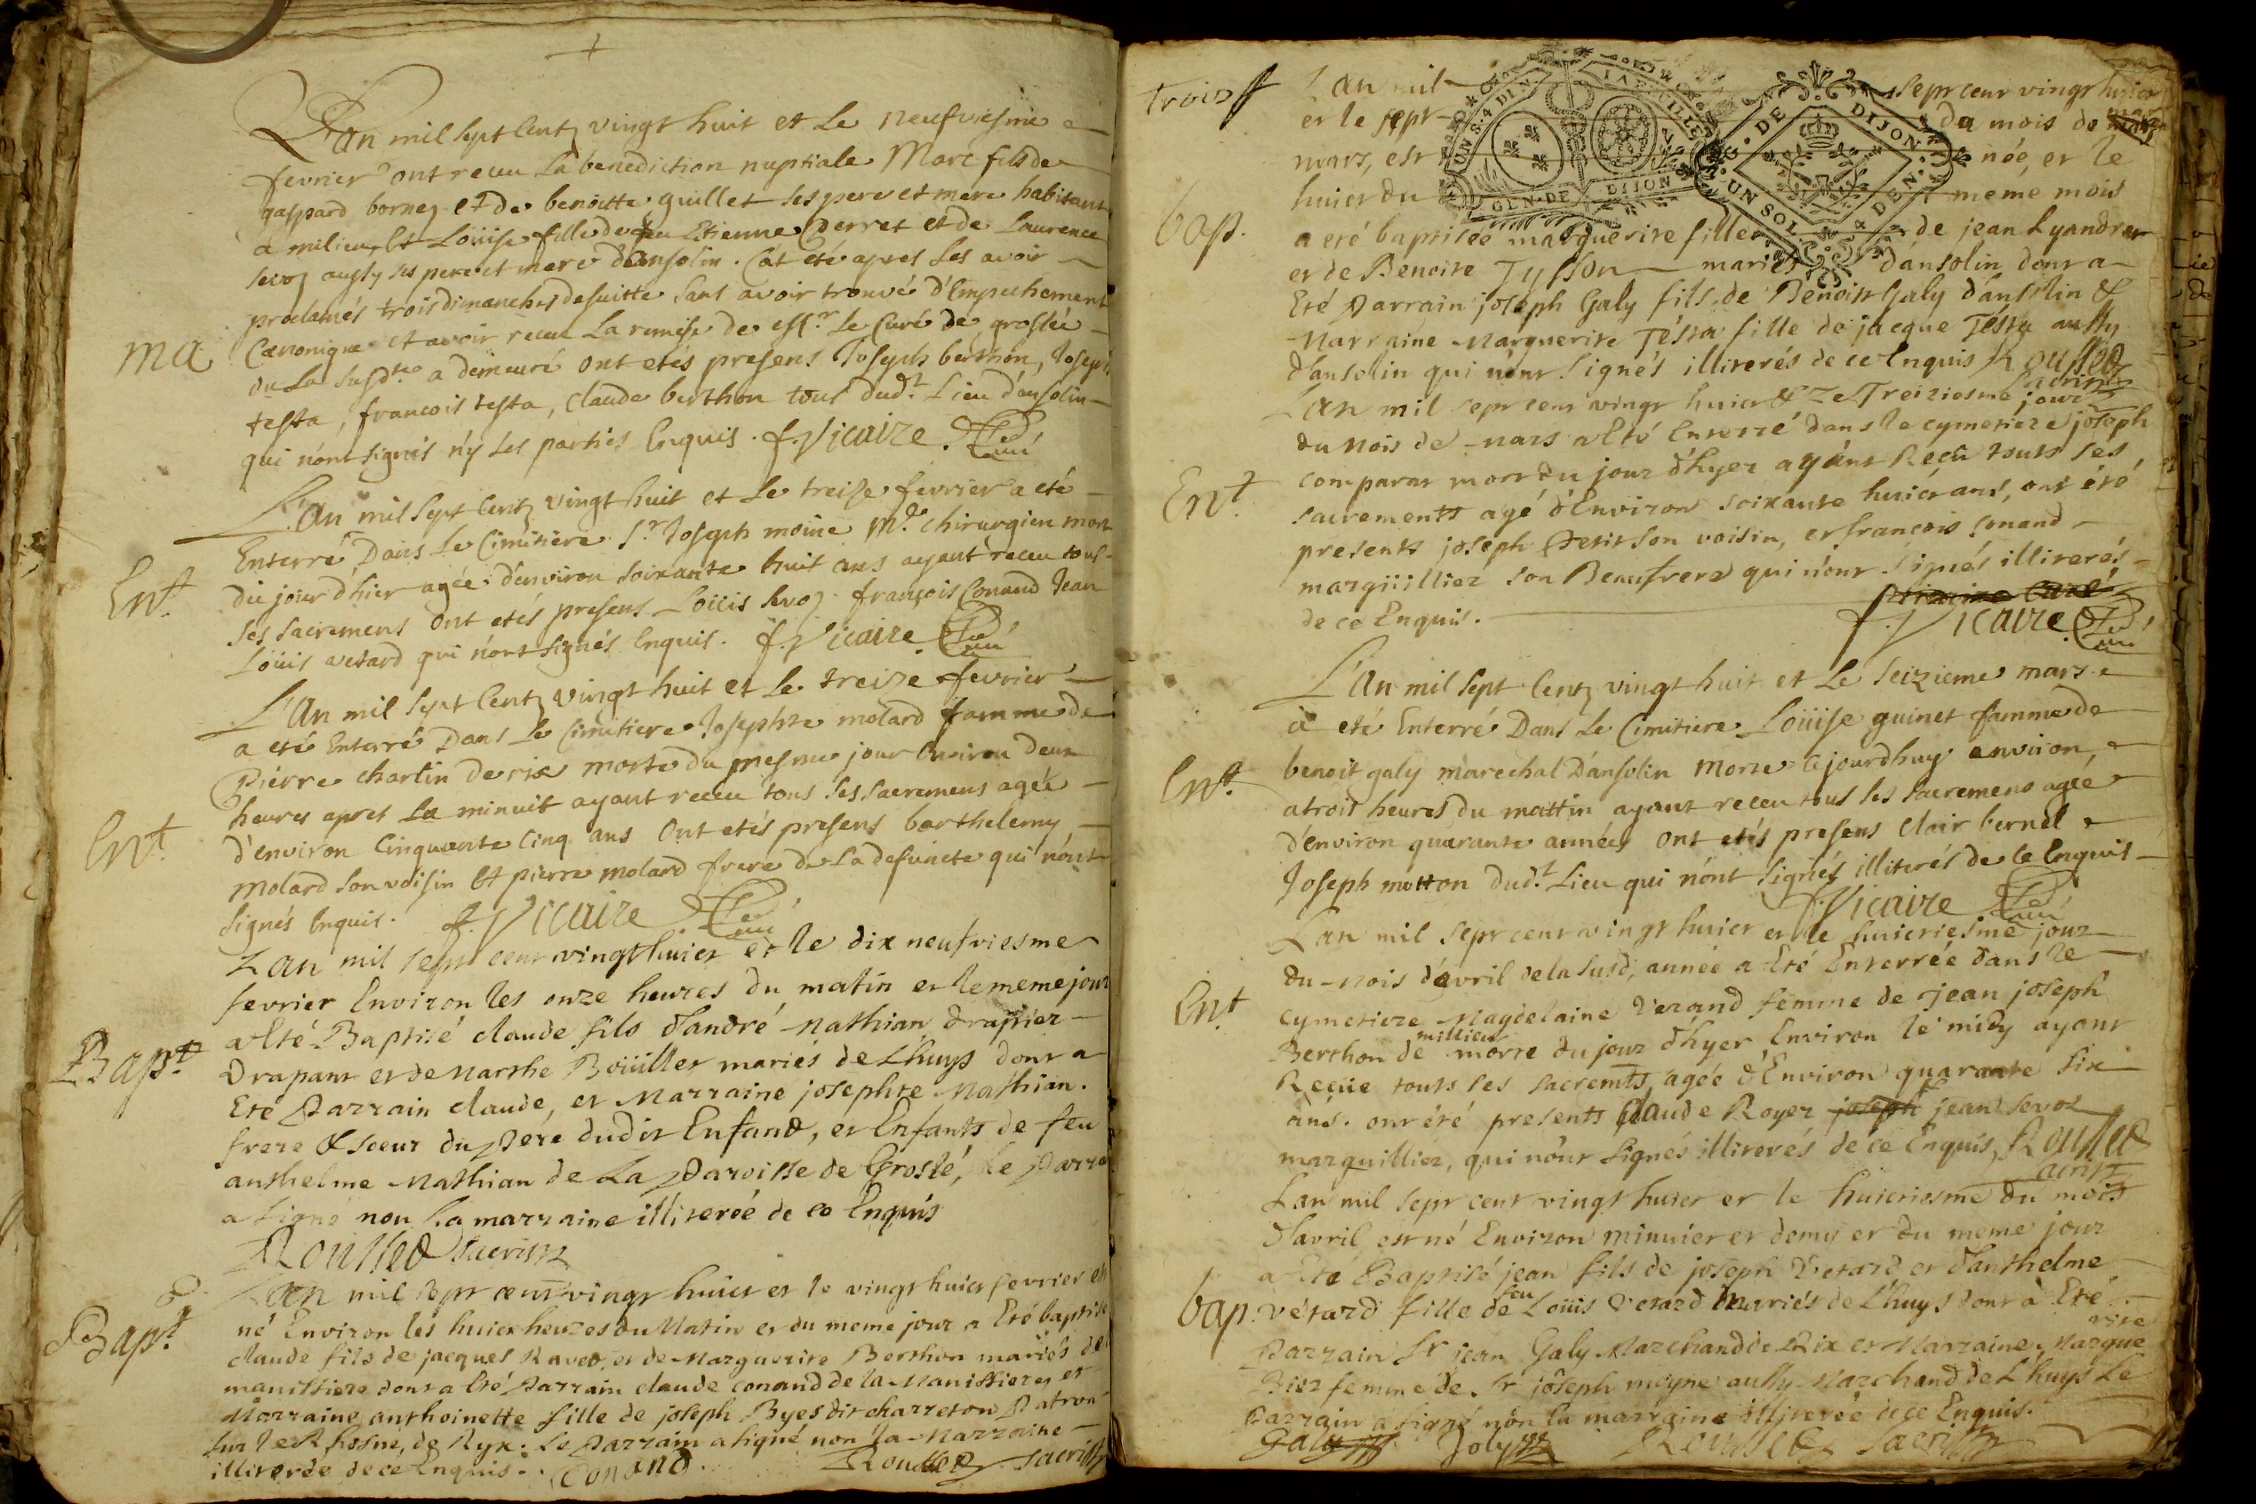 L'an mil sept Centz vingt huit et Le neufviesme
fevrier ont receu La benediction nuptiale Marc fils de
gaspard bornez et de benoitte guillet ses pere et mere habitant
a milieu, Et Loüise fille de feu Etienne derret et de Laurence
sevoz aussy ses pere et mere d'ansolin. Cat eté apres Les avoir
proclamés trois dimanches desuitte sans avoir trouvé d'Empechement
Canonique et avoir receu La remise de Le Curé de groslée
ma
ou La susd.te a demeuré ont etés presens Joseph berthon, Joseph
testa, francois testa, Claude berthon tous dud.t Lieu d'ansolin
qui n'ont signés n'y Les parties Enquis. f. Vicaire
L'an mil sept Centz vingt huit et Le treize fevrier a eté
Enterré Dans Le Cimitiere S.r Joseph moine M.e chirurgien mort
Ent.
du jour d'hier agée d'environ soixante huit ans ayant receu tous
ses sacremens ont etés presens Loüis sevoz françois Conand Jean
Loüis vetard qui n'ont signés Enquis. f. Vicaire
L'An mil sept Centz vingt huit et Le treize fevrier
a eté Enterré Dans Le Cimitiere Josephte molard famme de
Pierre charlin de rix morte du mesme jour Environ deux
heures apres La minuit ayant receu tous ses sacremens agée
Ent.
d'environ Cinquante Cinq ans Ont etés presens barthelemy
molard son voisin Et pierre molard frere de La defuncte qui n'ont
signés Enquis. f. Vicaire
L'an mil sept cent vingt huict et le dix neufviesme
fevrier Environ les onze heures du matin et le meme jour
a Eté Baptisé claude fils d'andré Mathian drapier
Bapt.
Drapant et de Marthe Boüiller mariés de L'huys dont a
Eté Parrain claude, et Marraine josephte Mathian.
frere & soeur du Pere dudit Enfand, et Enfants de feu
anthelme Mathian de La Paroisse de Groslé, Le Parra
a signé non La marraine illiterée de ce Enquis
Rousset Sacristn
L'an mil sept cent vingt huict et le vingt huict fevrier est
né Environ les huict heures du Matin et du meme jour a Eté baptisé
Bapt.
claude fils de jacques Ravet, et de Marguerite Berthon mariés de
manissiere dont a Eté Parrain claude conand de la Manissiere, et
Marraine anthoinette fille de joseph Byes dit charreton Patron
sur le Rhosne, de Ryx. Le Parrain a signé non la Marraine
illiterée de ce Enquis. Conand. Rousset sacristn
Trois
L'an mil sept cent vingt huict
et le sept du mois de
mars, est née, et le
huict du meme mois
bap.
a eté baptisée marguerite fille de jean Lyandrat
et de Benoite Tysson mariés d'ansolin dont a
Eté Parrain joseph Galy fils de Benoist Galy d'ansolin &
Marraine Marguerite Testa fille de jacque Testa aussy
d'ansolin qui n'ont signés illiterés de ce Enquis Rousset
Sacristn
L'an mil sept cent vingt huict & le Treiziesme jour
du mois de mars a Eté Enterré dans le cymetiere joseph
Ent.
comparat mort du jour d'hyer ayant Reçû touts ses
sacrements agé d'Environ soixante huict ans, ont été
presents joseph Petit son voisin, et françois conand
marguillier son Beaufrere qui n'ont signés illiterés
de ce Enquis.
f. Vicaire
L'an mil sept Centz vingt huit et Le seizieme mars
a eté Enterré Dans Le Cimitiere Loüise guinet famme de
Ent.
benoit galy marechal D'ansolin Morte Cejourdhuy environ
a trois heures du mattin ayant receu tous les sacremens agée
d'environ quarante années Ont etés presens Clair bernel
Joseph motton dud.t Lieu qui n'ont signés illiterés de Ce Enquis
f. Vicaire
L'an mil sept cent vingt huict et le huictiesme jour
du mois d'avril de la susd. année a Eté Enterrée dans le
Ent.
cymetiere Magdelaine Verand femme de jean joseph
millieu
Berthon de morte du jour d'hyer Environ le midy ayant
Reçüe touts ses sacremts, agée d'Environ quarante six
ans. ont été presents claude Royer joseph jean sevoz
marguillier, qui n'ont signés illiterés de ce Enquis, Rousset
sacristn
L'an mil sept cent vingt huict et le huictiesme du mois
d'avril est né Environ minuict et demy et du meme jour
a Eté Baptisé jean fils de joseph Vetard et d'anthelme
feu
bap.
vétard fille de Loüis Vetard mariés de L'huys dont à Eté
rite
Parrain Sr jean Galy Marchand de Rix et Marraine Margue
Biez femme de Sr joseph moyne aussy Marchand de L'huys Le
Parrain a signé non la marraine illiterée de ce Enquis.
Galy Joly Rousset Sacristn